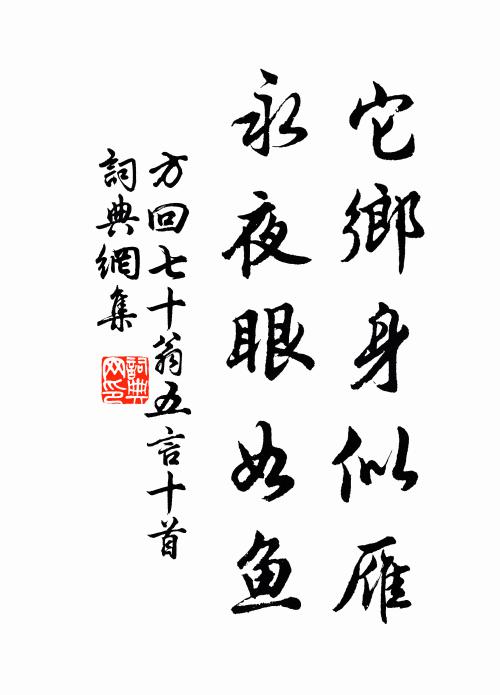 它鄉身似雁
永夜眼如魚
方回七十翁五言十首
詞典網集
詞典網印